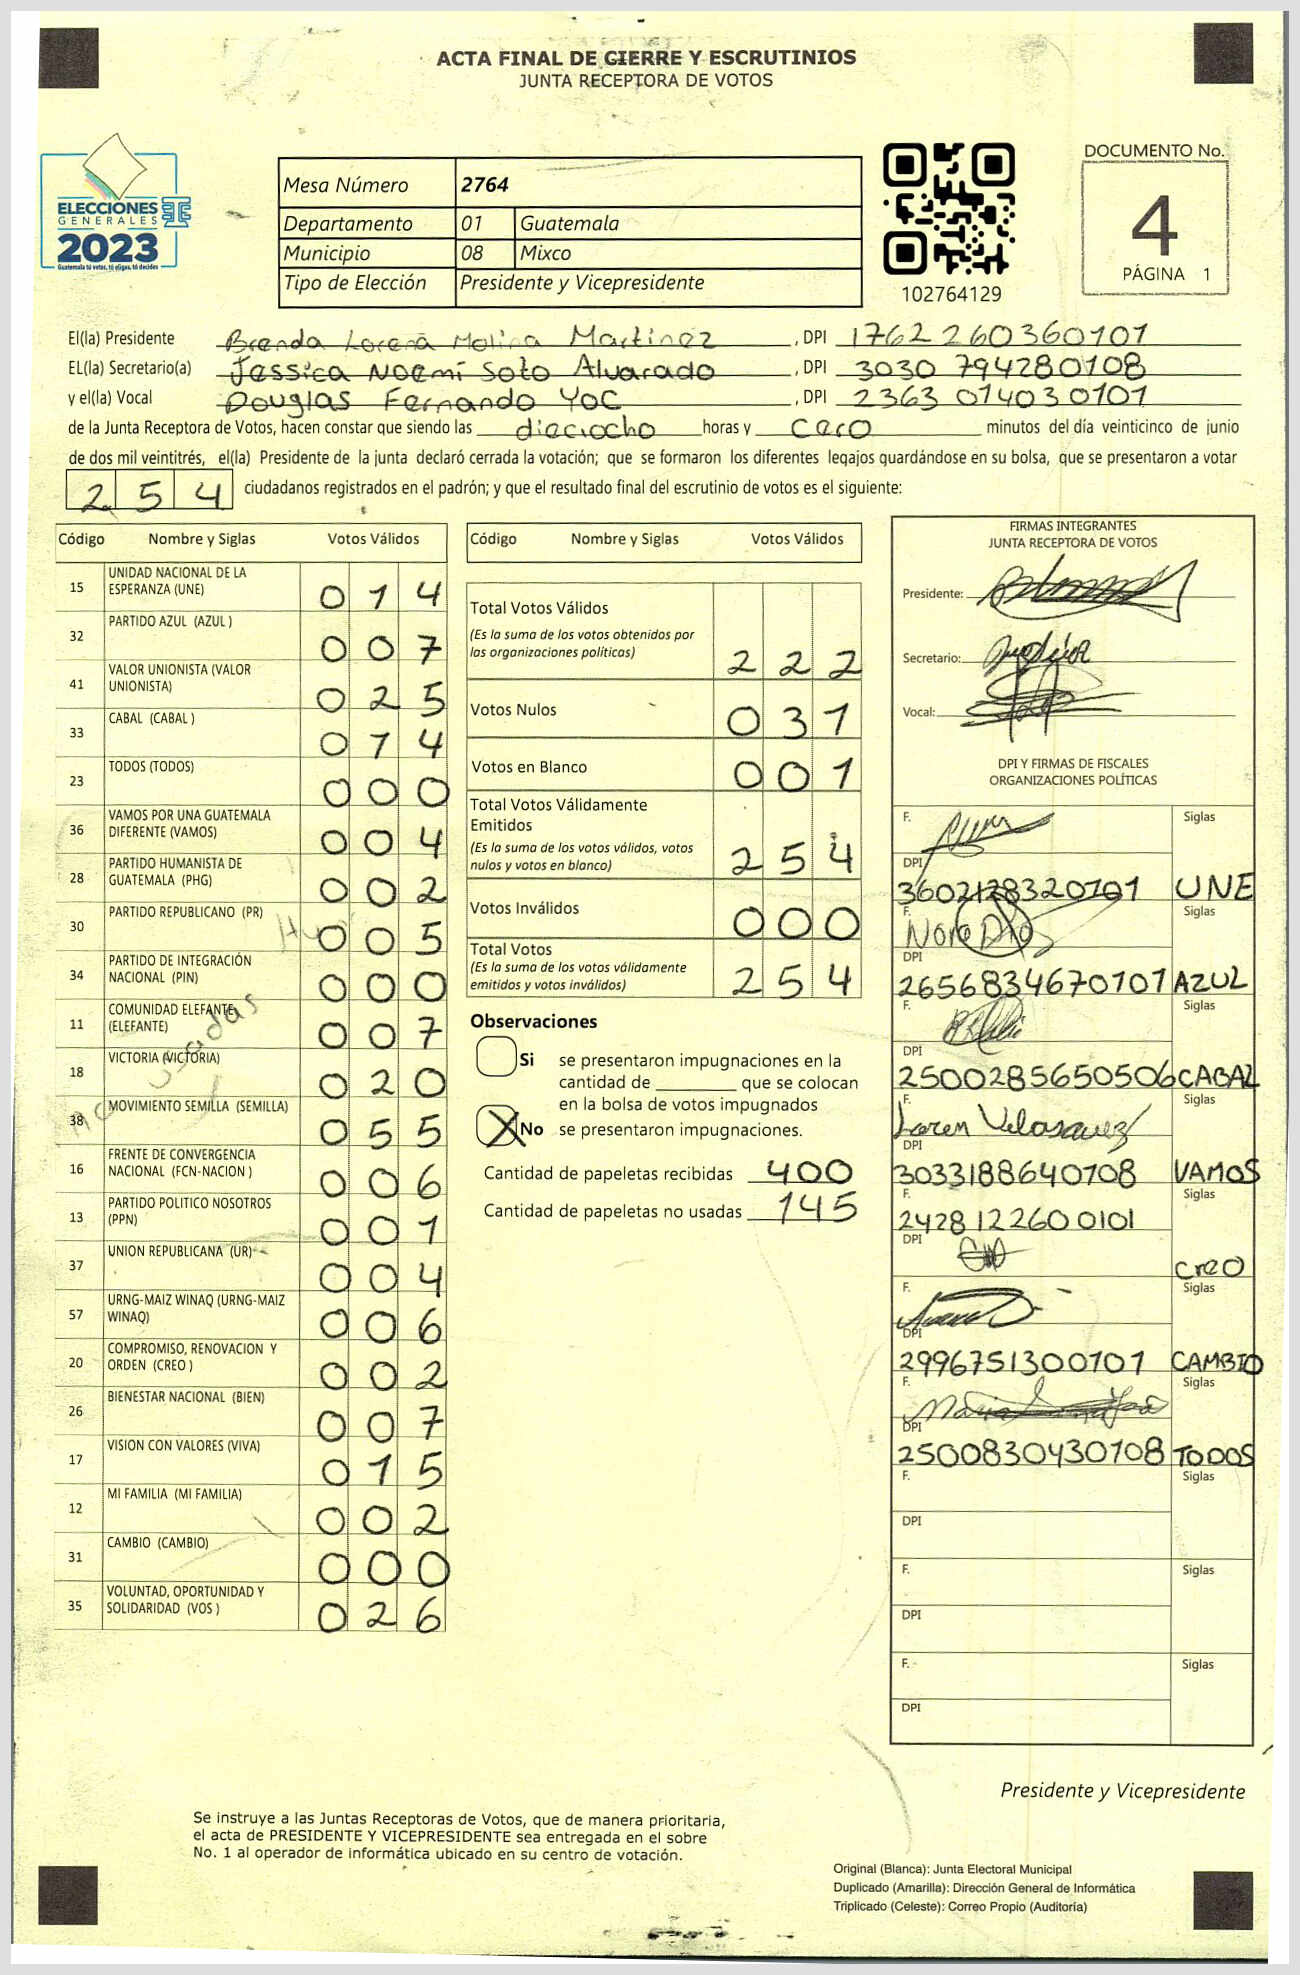 ACTA FINAL DE CIERRE Y ESCRUTINIOS
JUNTA RECEPTORA DE VOTOS
ELECCIONES
GENERALES
2023
Guatemala tú votas, tú eliges, tú decides
Mesa Número 2764
Departamento 01 Guatemala
Municipio 08 Mixco
Tipo de Elección Presidente y Vicepresidente
102764129
DOCUMENTO No.
4
PÁGINA 1
El(la) Presidente Brenda Lorena Molina Martinez, DPI 1762 260360101
EL(la) Secretario(a) Jessica Noemi Soto Alvarado, DPI 3030 794280108
y el(la) Vocal Douglas Fernando Yoc, DPI 2363 014030101
de la Junta Receptora de Votos, hacen constar que siendo las dieciocho horas y cero minutos del día veinticinco de junio
de dos mil veintitrés, el(la) Presidente de la junta declaró cerrada la votación; que se formaron los diferentes legajos guardándose en su bolsa, que se presentaron a votar
254 ciudadanos registrados en el padrón; y que el resultado final del escrutinio de votos es el siguiente:
Código Nombre y Siglas Votos Válidos
15 UNIDAD NACIONAL DE LA ESPERANZA (UNE) 014
32 PARTIDO AZUL (AZUL ) 007
41 VALOR UNIONISTA (VALOR UNIONISTA) 025
33 CABAL (CABAL ) 014
23 TODOS (TODOS) 000
36 VAMOS POR UNA GUATEMALA DIFERENTE (VAMOS) 004
28 PARTIDO HUMANISTA DE GUATEMALA (PHG) 002
30 PARTIDO REPUBLICANO (PR) 005
34 PARTIDO DE INTEGRACIÓN NACIONAL (PIN) 000
11 COMUNIDAD ELEFANTE (ELEFANTE) 007
18 VICTORIA (VICTORIA) 020
38 MOVIMIENTO SEMILLA (SEMILLA) 055
16 FRENTE DE CONVERGENCIA NACIONAL (FCN-NACION ) 006
13 PARTIDO POLITICO NOSOTROS (PPN) 001
37 UNION REPUBLICANA (UR) 004
57 URNG-MAIZ WINAQ (URNG-MAIZ WINAQ) 006
20 COMPROMISO, RENOVACION Y ORDEN (CREO ) 002
26 BIENESTAR NACIONAL (BIEN) 007
17 VISION CON VALORES (VIVA) 015
12 MI FAMILIA (MI FAMILIA) 002
31 CAMBIO (CAMBIO) 000
35 VOLUNTAD, OPORTUNIDAD Y SOLIDARIDAD (VOS ) 026
Código Nombre y Siglas Votos Válidos
Total Votos Válidos
(Es la suma de los votos obtenidos por
las organizaciones políticas) 222
Votos Nulos 031
Votos en Blanco 001
Total Votos Válidamente
Emitidos
(Es la suma de los votos válidos, votos
nulos y votos en blanco) 254
Votos Inválidos 000
Total Votos
(Es la suma de los votos válidamente
emitidos y votos inválidos) 254
Observaciones
Si se presentaron impugnaciones en la
cantidad de ________ que se colocan
en la bolsa de votos impugnados
X No se presentaron impugnaciones.
Cantidad de papeletas recibidas 400
Cantidad de papeletas no usadas 145
FIRMAS INTEGRANTES
JUNTA RECEPTORA DE VOTOS
Presidente:
Secretario:
Vocal:
DPI Y FIRMAS DE FISCALES
ORGANIZACIONES POLÍTICAS
F. Siglas
DPI
3602128320101 UNE
F. Siglas
DPI
2656834670101 AZUL
F. Siglas
DPI
2500285650506 CABAL
F. Loren Velasquez Siglas
DPI
3033188640108 VAMOS
F. Siglas
2428122600101
DPI
creo
F. Siglas
DPI
2996751300101 CAMBIO
F. Siglas
DPI
2500830430108 TODOS
F. Siglas
DPI
F. Siglas
DPI
F. Siglas
DPI
Presidente y Vicepresidente
Se instruye a las Juntas Receptoras de Votos, que de manera prioritaria,
el acta de PRESIDENTE Y VICEPRESIDENTE sea entregada en el sobre
No. 1 al operador de informática ubicado en su centro de votación.
Original (Blanca): Junta Electoral Municipal
Duplicado (Amarilla): Dirección General de Informática
Triplicado (Celeste): Correo Propio (Auditoría)